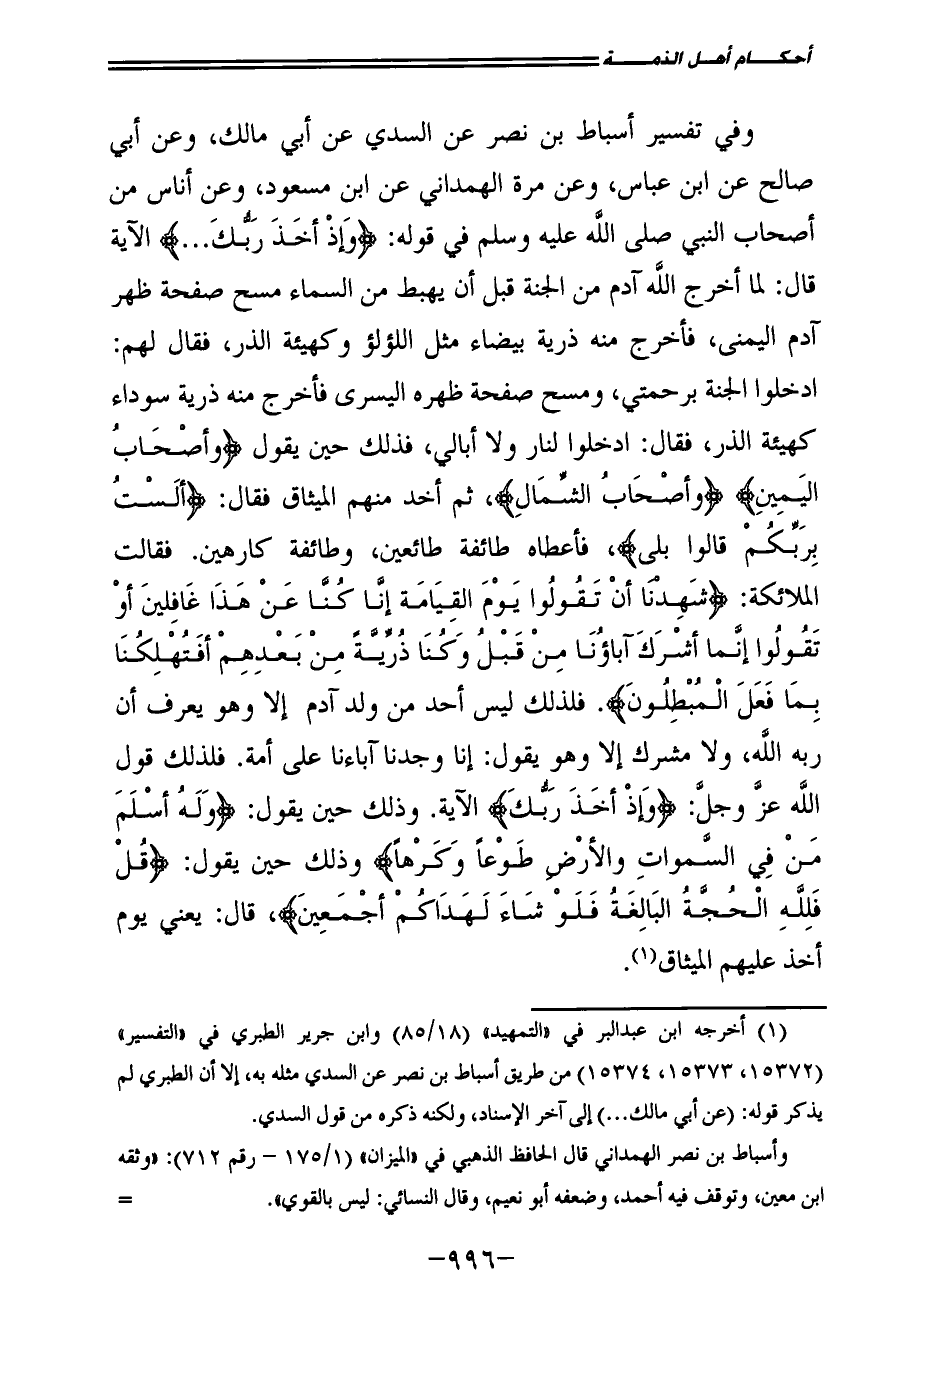 أحكـــام أهـل الذمـــة
وفي تفسير أسباط بن نصر عن السدي عن أبي مالك، وعن أبي
صالح عن ابن عباس، وعن مرة الهمداني عن ابن مسعود، وعن أناس من
أصحاب النبي صلى اللَّه عليه وسلم في قوله: ﴿وَإذْ أخَـذَ رَبُّـكَ...﴾ الآية
قال: لما أخرج اللَّه آدم من الجنة قبل أن يهبط من السماء مسح صفحة ظهر
آدم اليمنى، فأخرج منه ذرية بيضاء مثل اللؤلؤ وكهيئة الذر، فقال لهم:
ادخلوا الجنة برحمتي، ومسح صفحة ظهره اليسرى فأخرج منه ذرية سوداء
كهيئة الذر، فقال: ادخلوا لنار ولا أبالي، فذلك حين يقول ﴿وأصْـحَـابُ
اليَـمِينِ﴾ ﴿وأصْـحَابُ الشِّـمَالِ﴾، ثم أخد منهم الميثاق فقال: ﴿ألَـسْـتُ
بِرَبِّـكُـمْ قالوا بلى﴾، فأعطاه طائفة طائعين، وطائفة كارهين. فقالت
الملائكة: ﴿شَهِـدْنَا أنْ تَـقُـولُوا يَـوْمَ القِيَـامَـةِ إنَّـا كُـنَّـا عَـنْ هَـذَا غَافِلينَ أوْ
تَقُـولُوا إنَّـما أشْـرَكَ آباؤُنَـا مِـنْ قَـبْـلُ وَكُـنَا ذُرِّيَّـةً مِـنْ بَـعْـدِهِـمْ أفَـتُـهْـلِكُـنَا
بِـمَا فَعَلَ الْـمُبْطِلُـونَ﴾. فلذلك ليس أحد من ولد آدم إلا وهو يعرف أن
ربه اللَّه، ولا مشرك إلا وهو يقول: إنا وجدنا آباءنا على أمة. فلذلك قول
اللَّه عزَّ وجلَّ: ﴿وَإذْ أخَـذَ رَبُّـكَ﴾ الآية. وذلك حين يقول: ﴿وَلَـهُ أسْـلَمَ
مَـنْ فِي السَّموَاتِ والأرْضِ طَـوْعاً وَكَـرْهاً﴾ وذلك حين يقول: ﴿قُـلْ
فَلِلَّـهِ الْـحُـجَّـةُ البَالِغَةُ فَـلَـوْ شَاءَ لَـهَدَاكُـمْ أجْـمَعِينَ﴾، قال: يعني يوم
أخذ عليهم الميثاق(١).
(١) أخرجه ابن عبدالبر في «التمهيد» (٨٥/١٨) وابن جرير الطبري في «التفسير»
(١٥٣٧٢، ١٥٣٧٣، ١٥٣٧٤) من طريق أسباط بن نصر عن السدي مثله به، إلا أن الطبري لم
يذكر قوله: (عن أبي مالك...) إلى آخر الإسناد، ولكنه ذكره من قول السدي.
وأسباط بن نصر الهمداني قال الحافظ الذهبي في «الميزان» (١٧٥/١ – رقم ٧١٢): «وثقه
ابن معين، وتوقف فيه أحمد، وضعفه أبو نعيم، وقال النسائي: ليس بالقوي». =
–٩٩٦–